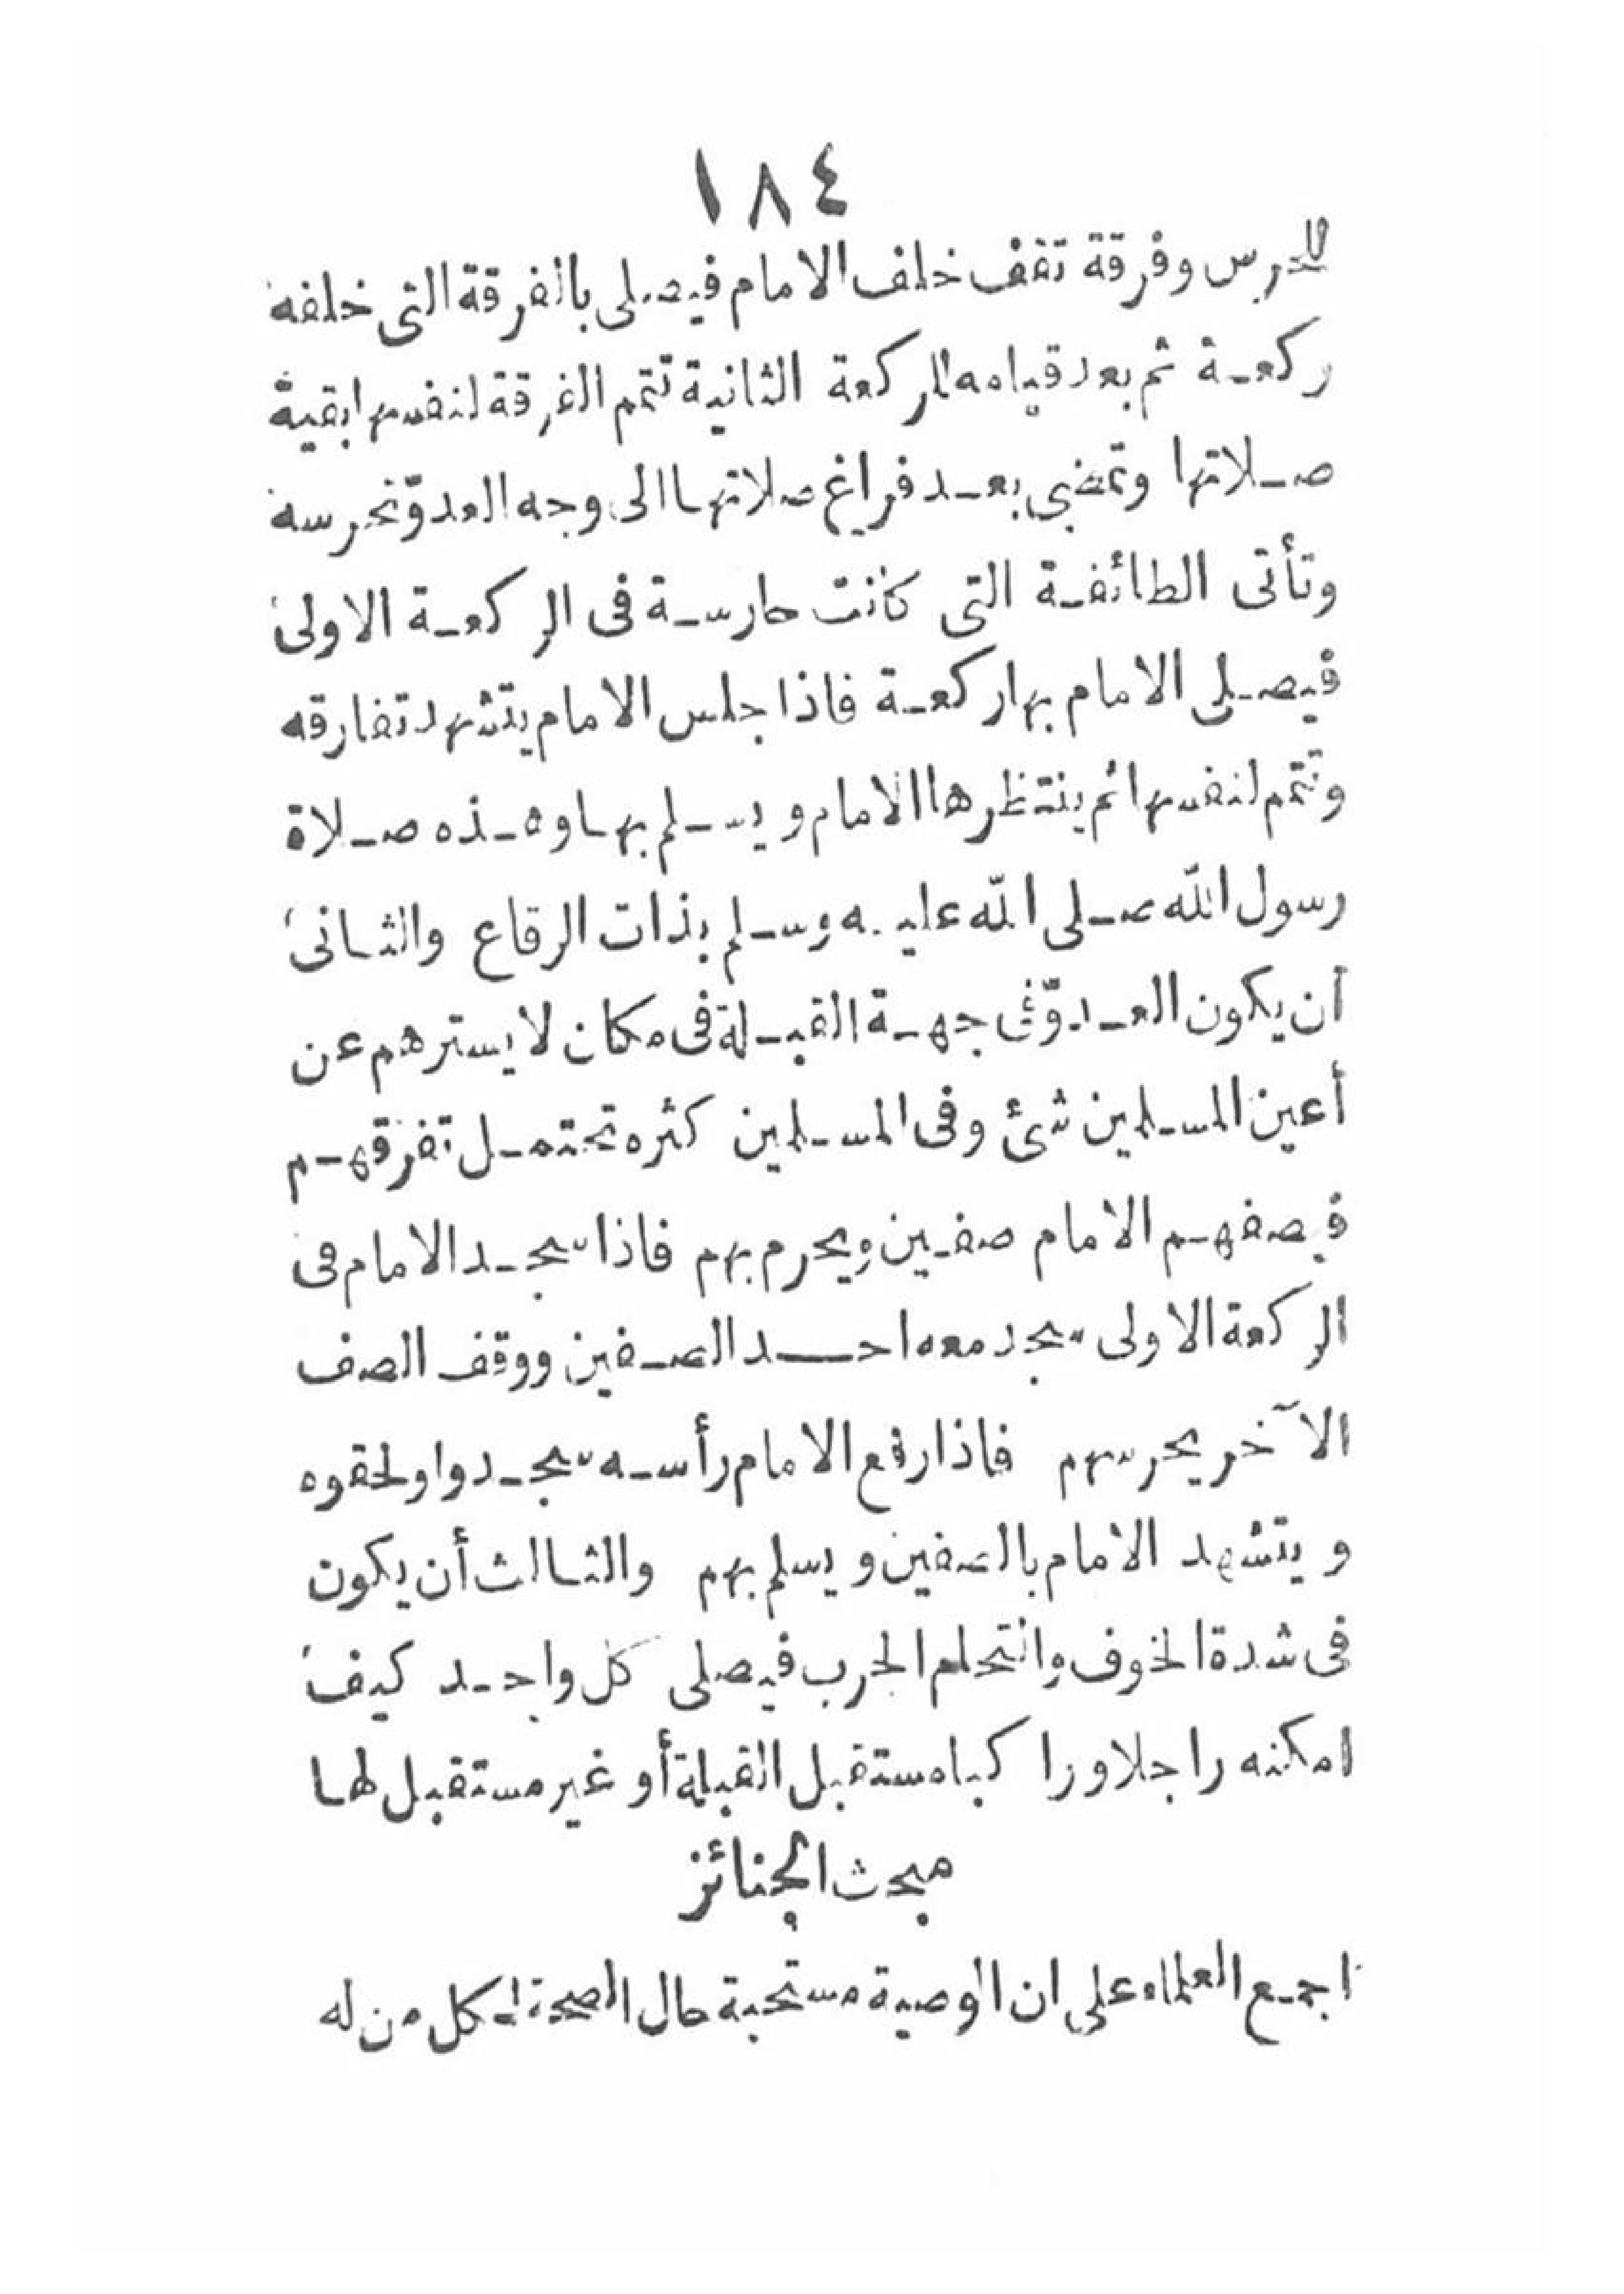 ١٨٤
للحرس وفرقة تقف خلف الامام فيصلى بالفرقة التى خلفه
ركعة ثم بعد قيامه للركعة الثانية تتم الفرقة لنفسها بقية
صلاتها وتمضى بعد فراغ صلاتها الى وجه العدوّ تحرسه
وتأتى الطائفة التى كانت حارسة فى الركعة الاولى
فيصلى الامام بها ركعة فاذا جلس الامام يتشهد تفارقه
وتتم لنفسها ثم ينتظرها الامام ويسلم بها وهذه صلاة
رسول الله صلى الله عليه وسلم بذات الرقاع والثانى
أن يكون العدوّ فى جهة القبلة فى مكان لا يسترهم عن
أعين المسلمين شئ وفى المسلمين كثره تحتمل تفرقهم
فيصفهم الامام صفين ويحرم بهم فاذا سجد الامام فى
الركعة الاولى سجد معه احد الصفين ووقف الصف
الآخر يحرسهم فاذا رفع الامام رأسه سجدوا ولحقوه
ويتشهد الامام بالصفين ويسلم بهم والثالث أن يكون
فى شدة الخوف والتحام الحرب فيصلى كل واحد كيف
امكنه راجلا وراكبا مستقبل القبلة أو غير مستقبل لها
مبحث الجنائز
اجمع العلماء على ان الوصية مستحبة حال الصحة لكل من له